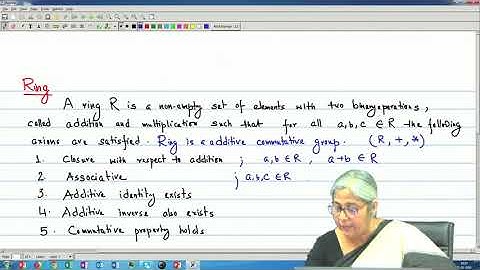 Ring
A ring R is a non-empty set of elements with two binary operations,
called addition and multiplication such that for all a,b,c ∈ R the following
axioms are satisfied. Ring is a additive commutative group. (R, +, *)
1. Closure with respect to addition ; a,b ∈ R, a+b ∈ R
2. Associative ; a,b,c ∈ R
3. Additive identity exists
4. Additive Inverse also exists
5. Commutative property holds